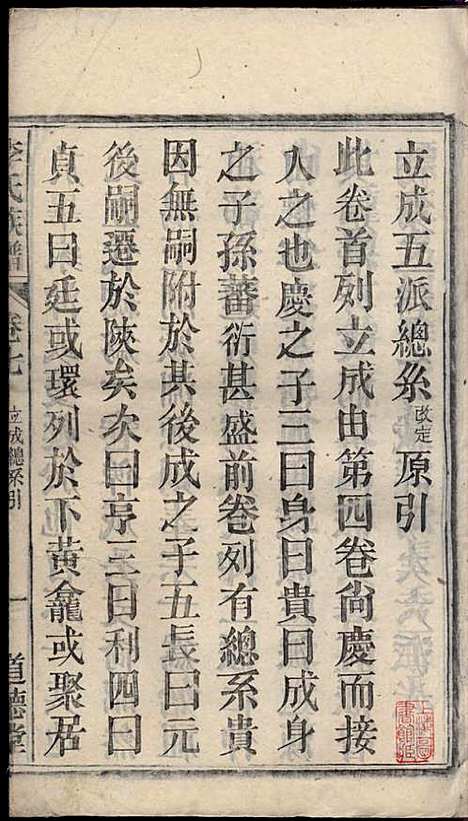 立成五派總系改定原引
此卷首列立成由第四卷尙慶而接
人之也慶之子三曰身曰貴曰成身
之子孫蕃衍甚盛前卷列有總系貴
因無嗣附於其後成之子五長曰元
後嗣遷於陝矣次曰亨三曰利四曰
貞五曰廷或環列於下黃龕或聚居
李氏族譜
卷七
立成總系引
一
道德堂